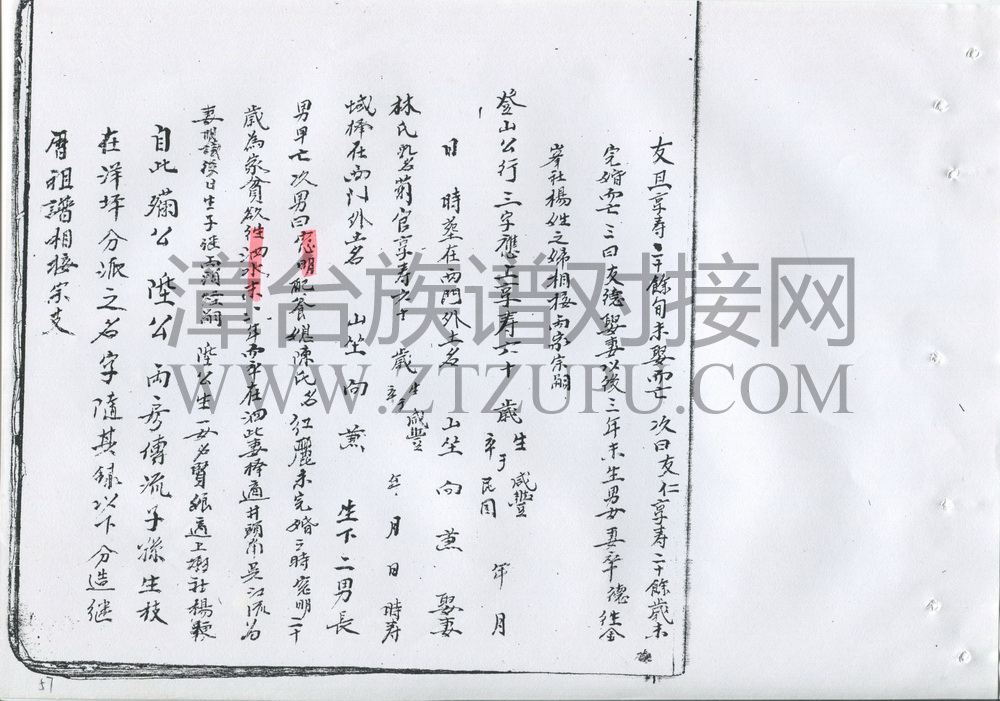 友旦享寿二十餘旬未娶而亡 次曰友仁享寿二十餘歲未
完婚而亡 三曰友德娶妻以後三年未生男女 德往金
峯社楊姓之婦相接 宗嗣
登山公行三字應上享寿六十 歲 生 咸豐 卒于民國 年 月
日 時葬在西門外土名 山坐 向 兼 娶妻
林氏乳名 官享寿六十 歲 生咸豐 卒 年 月 日 時寿
域擇在西门外土名 山坐 向 兼 生下二男長
男早亡次男曰 明配養媳陳氏名红 未完婚之時 明二十
歲為家貧欲往泗水未 年而卒在泗此妻擇適井頭 吳江流為
妻 議後日生子 嗣 陞公生一女名賢娘適上 社楊
自此 公 陞公 兩房傳流子孫生枝
在洋坪分派之名字隨其錄以下分造継
厝祖譜相接宗支
57
漳台族谱对接网
WWW.ZTZUPU.COM